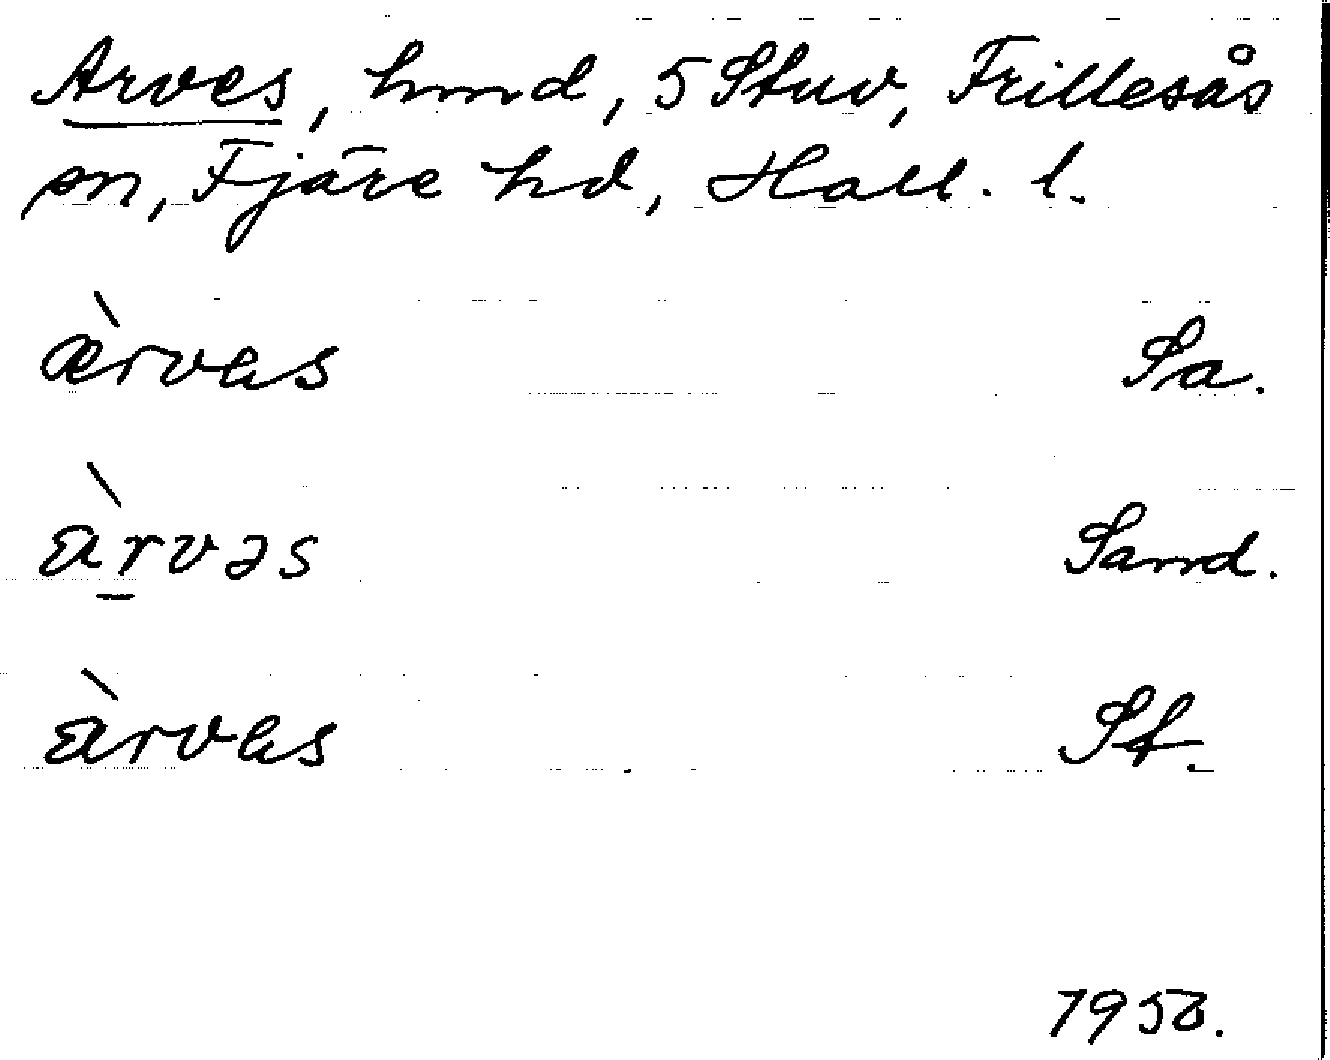 Arves, hmd, 5 Stuv, Frillesås
sn, Fjäre hd, Hall. l.
æ̀rvɐs Sa.
àr̲vəs Sand.
àrvɐs Sf.
1950.